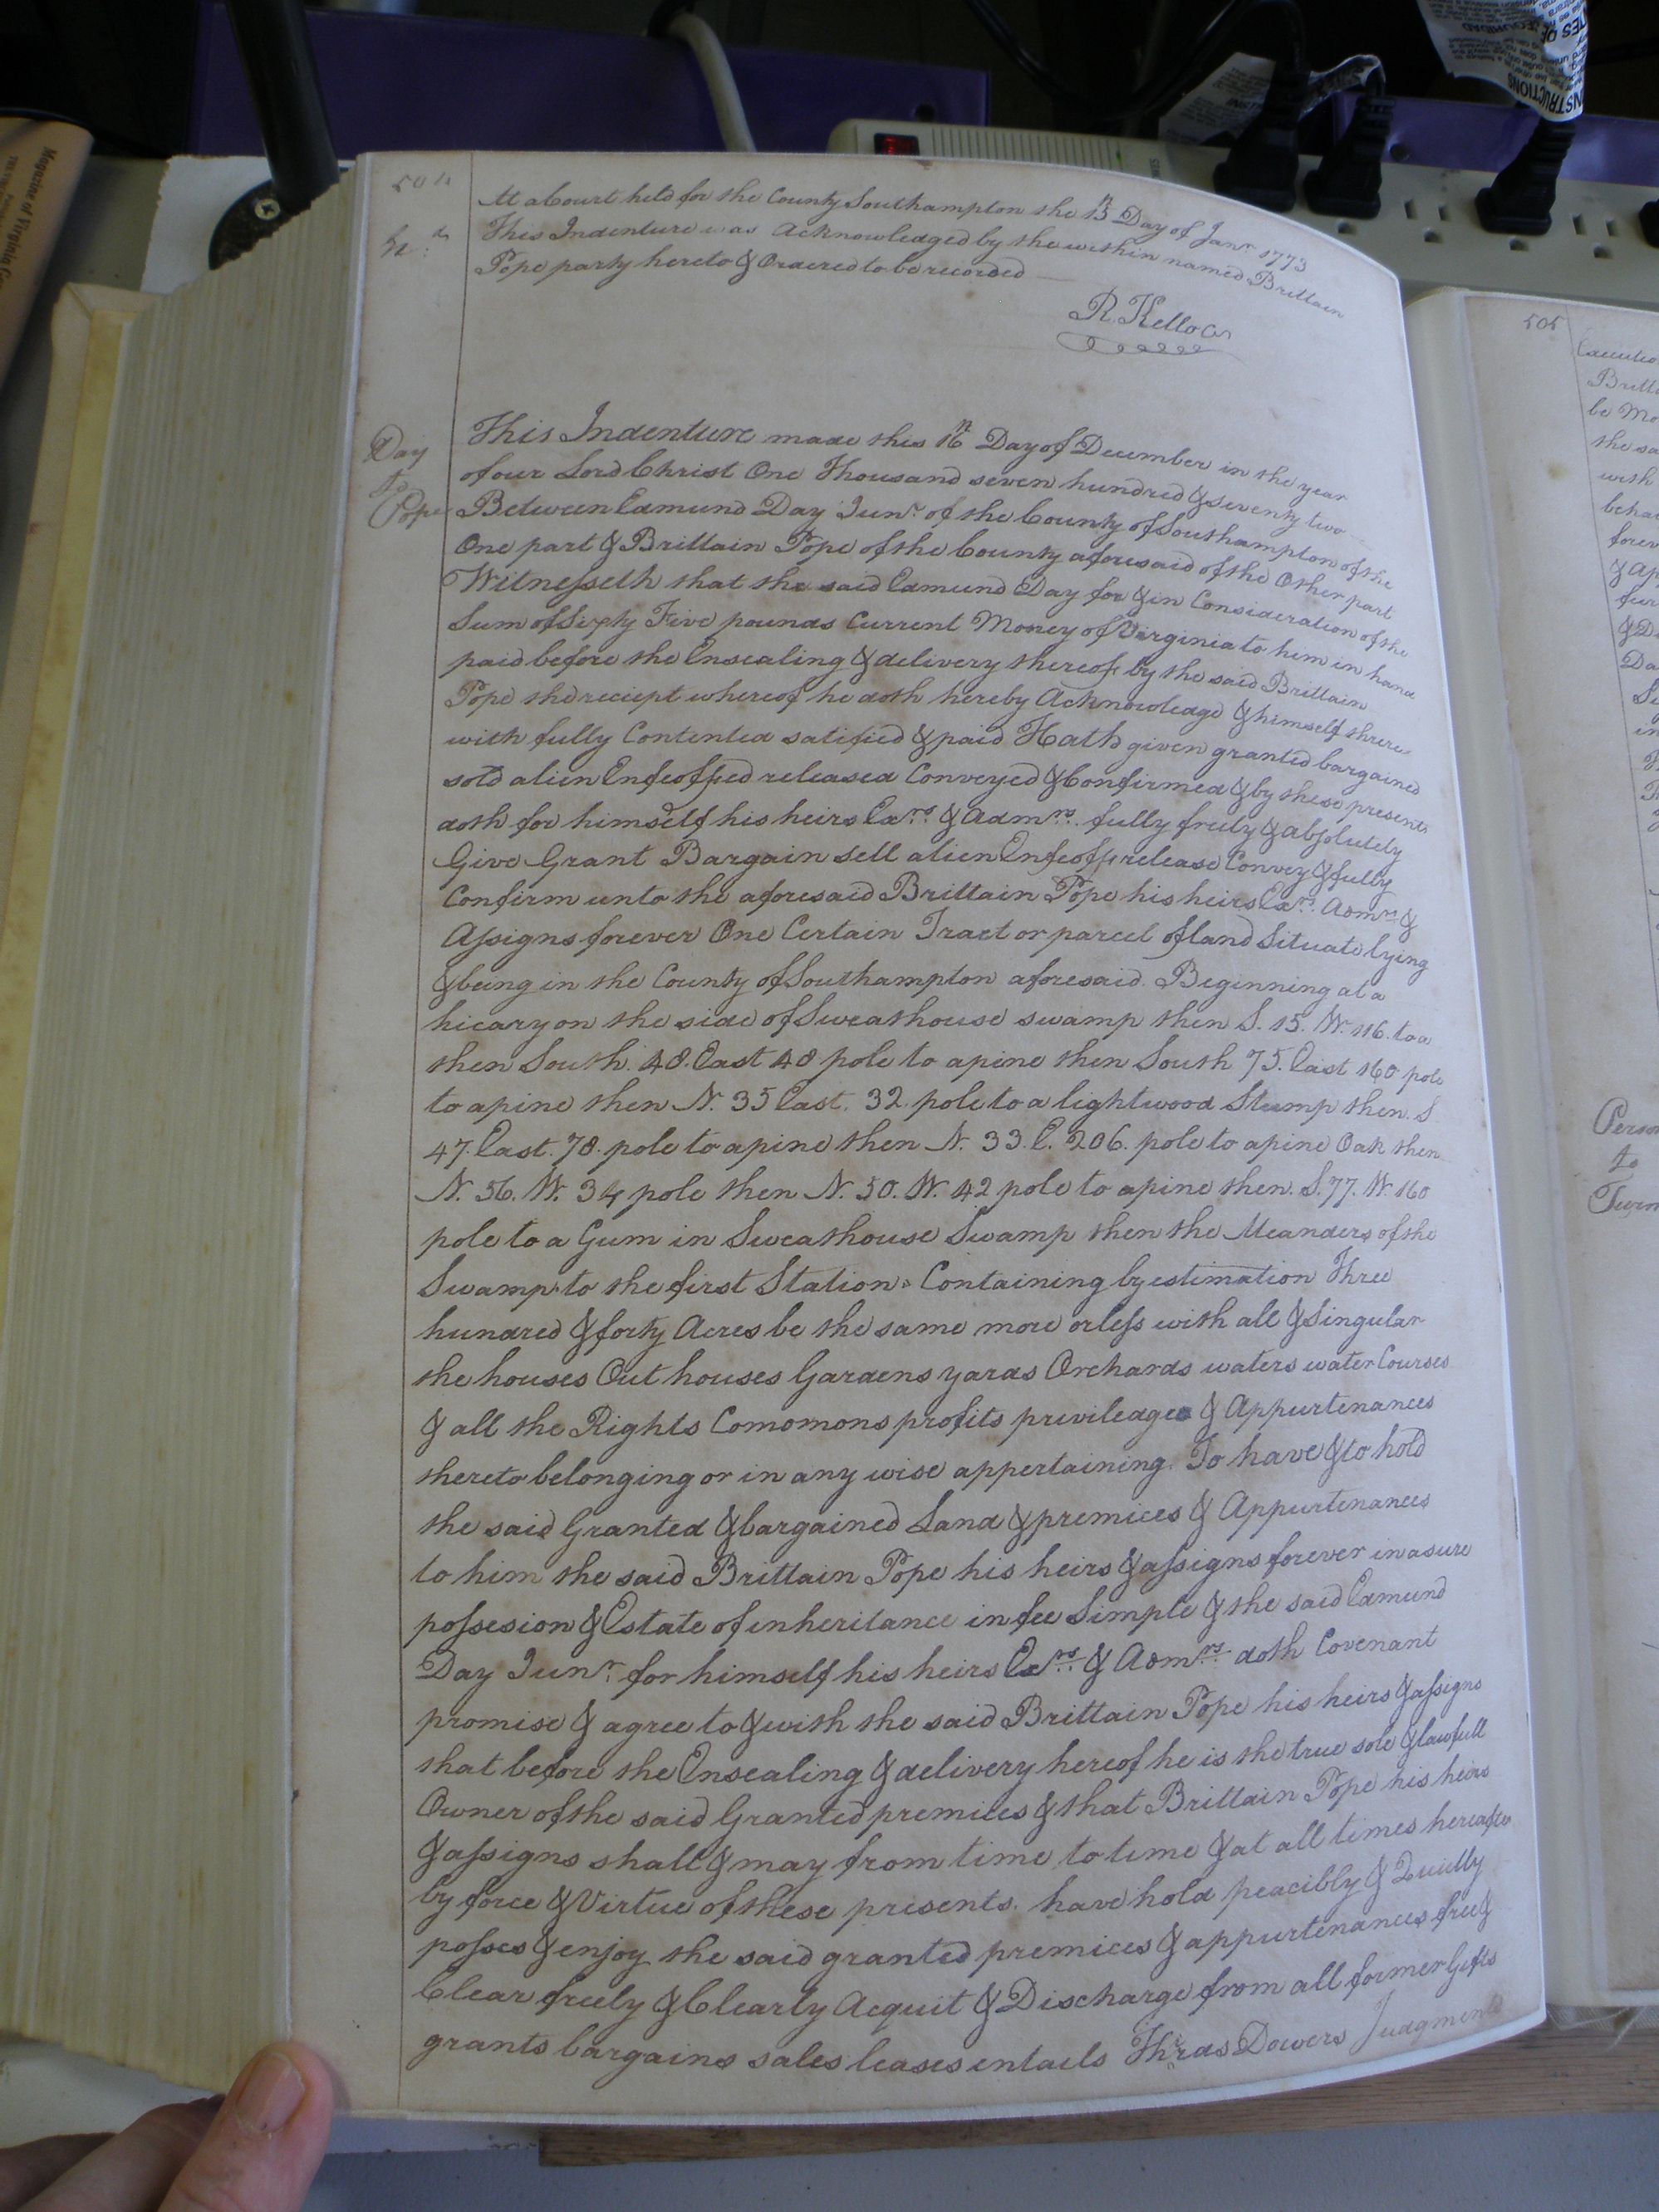 504
At a Court held for the County Southampton the 15th Day of Janr. 1773
This Indenture was Acknowledged by the within named Brittain
Pope party hereto & Ordered to be recorded
R. Kello
Day
to
Pope
This Indenture made this 16th Day of December in the year
of our Lord Christ One Thousand seven hundred & seventy two
Between Edmund Day Junr. of the County of Southampton of the
One part & Brittain Pope of the County aforesaid of the Other part
Witnesseth that the said Edmund Day for & in Consideration of the
Sum of Sixty Five pounds Current Money of Virginia to him in hand
paid before the Ensealing & delivery thereof by the said Brittain
Pope the reciept whereof he doth hereby Acknowledge & himself there
with fully Contented satified & paid Hath given granted bargained
sold alien Enfeoffed released Conveyed & Confirmed & by these presents
doth for himself his heirs Exrs. & Admrs. fully freely & absolutely
Give Grant Bargain sell alien Enfeoff release Convey & fully
Confirm unto the aforesaid Brittain Pope his heirs Exrs. Admrs. &
Assigns forever One Certain Tract or parcel of land Situate lying
& being in the County of Southampton aforesaid. Beginning at a
hicary on the side of Sweathouse swamp then S. 15. W. 116. to a
then South. 48. East 48 pole to a pine then South 75. East 160 pole
to a pine then N. 35 East. 32. pole to a lightwood Stump then. S
47. East. 78. pole to a pine then N. 33. E. 206. pole to a pine Oak then
N. 56. W. 34 pole then N. 50. W. 42 pole to a pine then. S. 77. W. 160
pole to a Gum in Sweathouse Swamp then the Meanders of the
Swamp to the first Station. Containing by estimation Three
hundred & forty Acres be the same more or less with all & Singular
the houses Out houses Gardens yards Orchards waters water Courses
& all the Rights Comomons profits privileages & Appurtenances
thereto belonging or in any wise appertaining. To have & to hold
the said Granted & bargained Land & premices & Appurtenances
to him the said Brittain Pope his heirs & assigns forever in a sure
possesion & Estate of inheritance in fee Simple & the said Edmund
Day Junr. for himself his heirs Exrs. & Admrs. doth Covenant
promise & agree to & with the said Brittain Pope his heirs & assigns
that before the Ensealing & delivery hereof he is the true sole & lawfull
Owner of the said Granted premices & that Brittain Pope his heirs
& assigns shall & may from time to time & at all times hereafter
by force & Virtue of these presents. have hold peacibly & Quietly
posses & enjoy the said granted premices & appurtenances free &
Clear freely & Clearly Acquit & Discharge from all former Gifts
grants bargains sales leases entails Dowers Judgments
505
Britt
be Mo
the sa
with
beha
forev
Person
to
Turn
Magazine of Virginia
INSTRUCTIONS